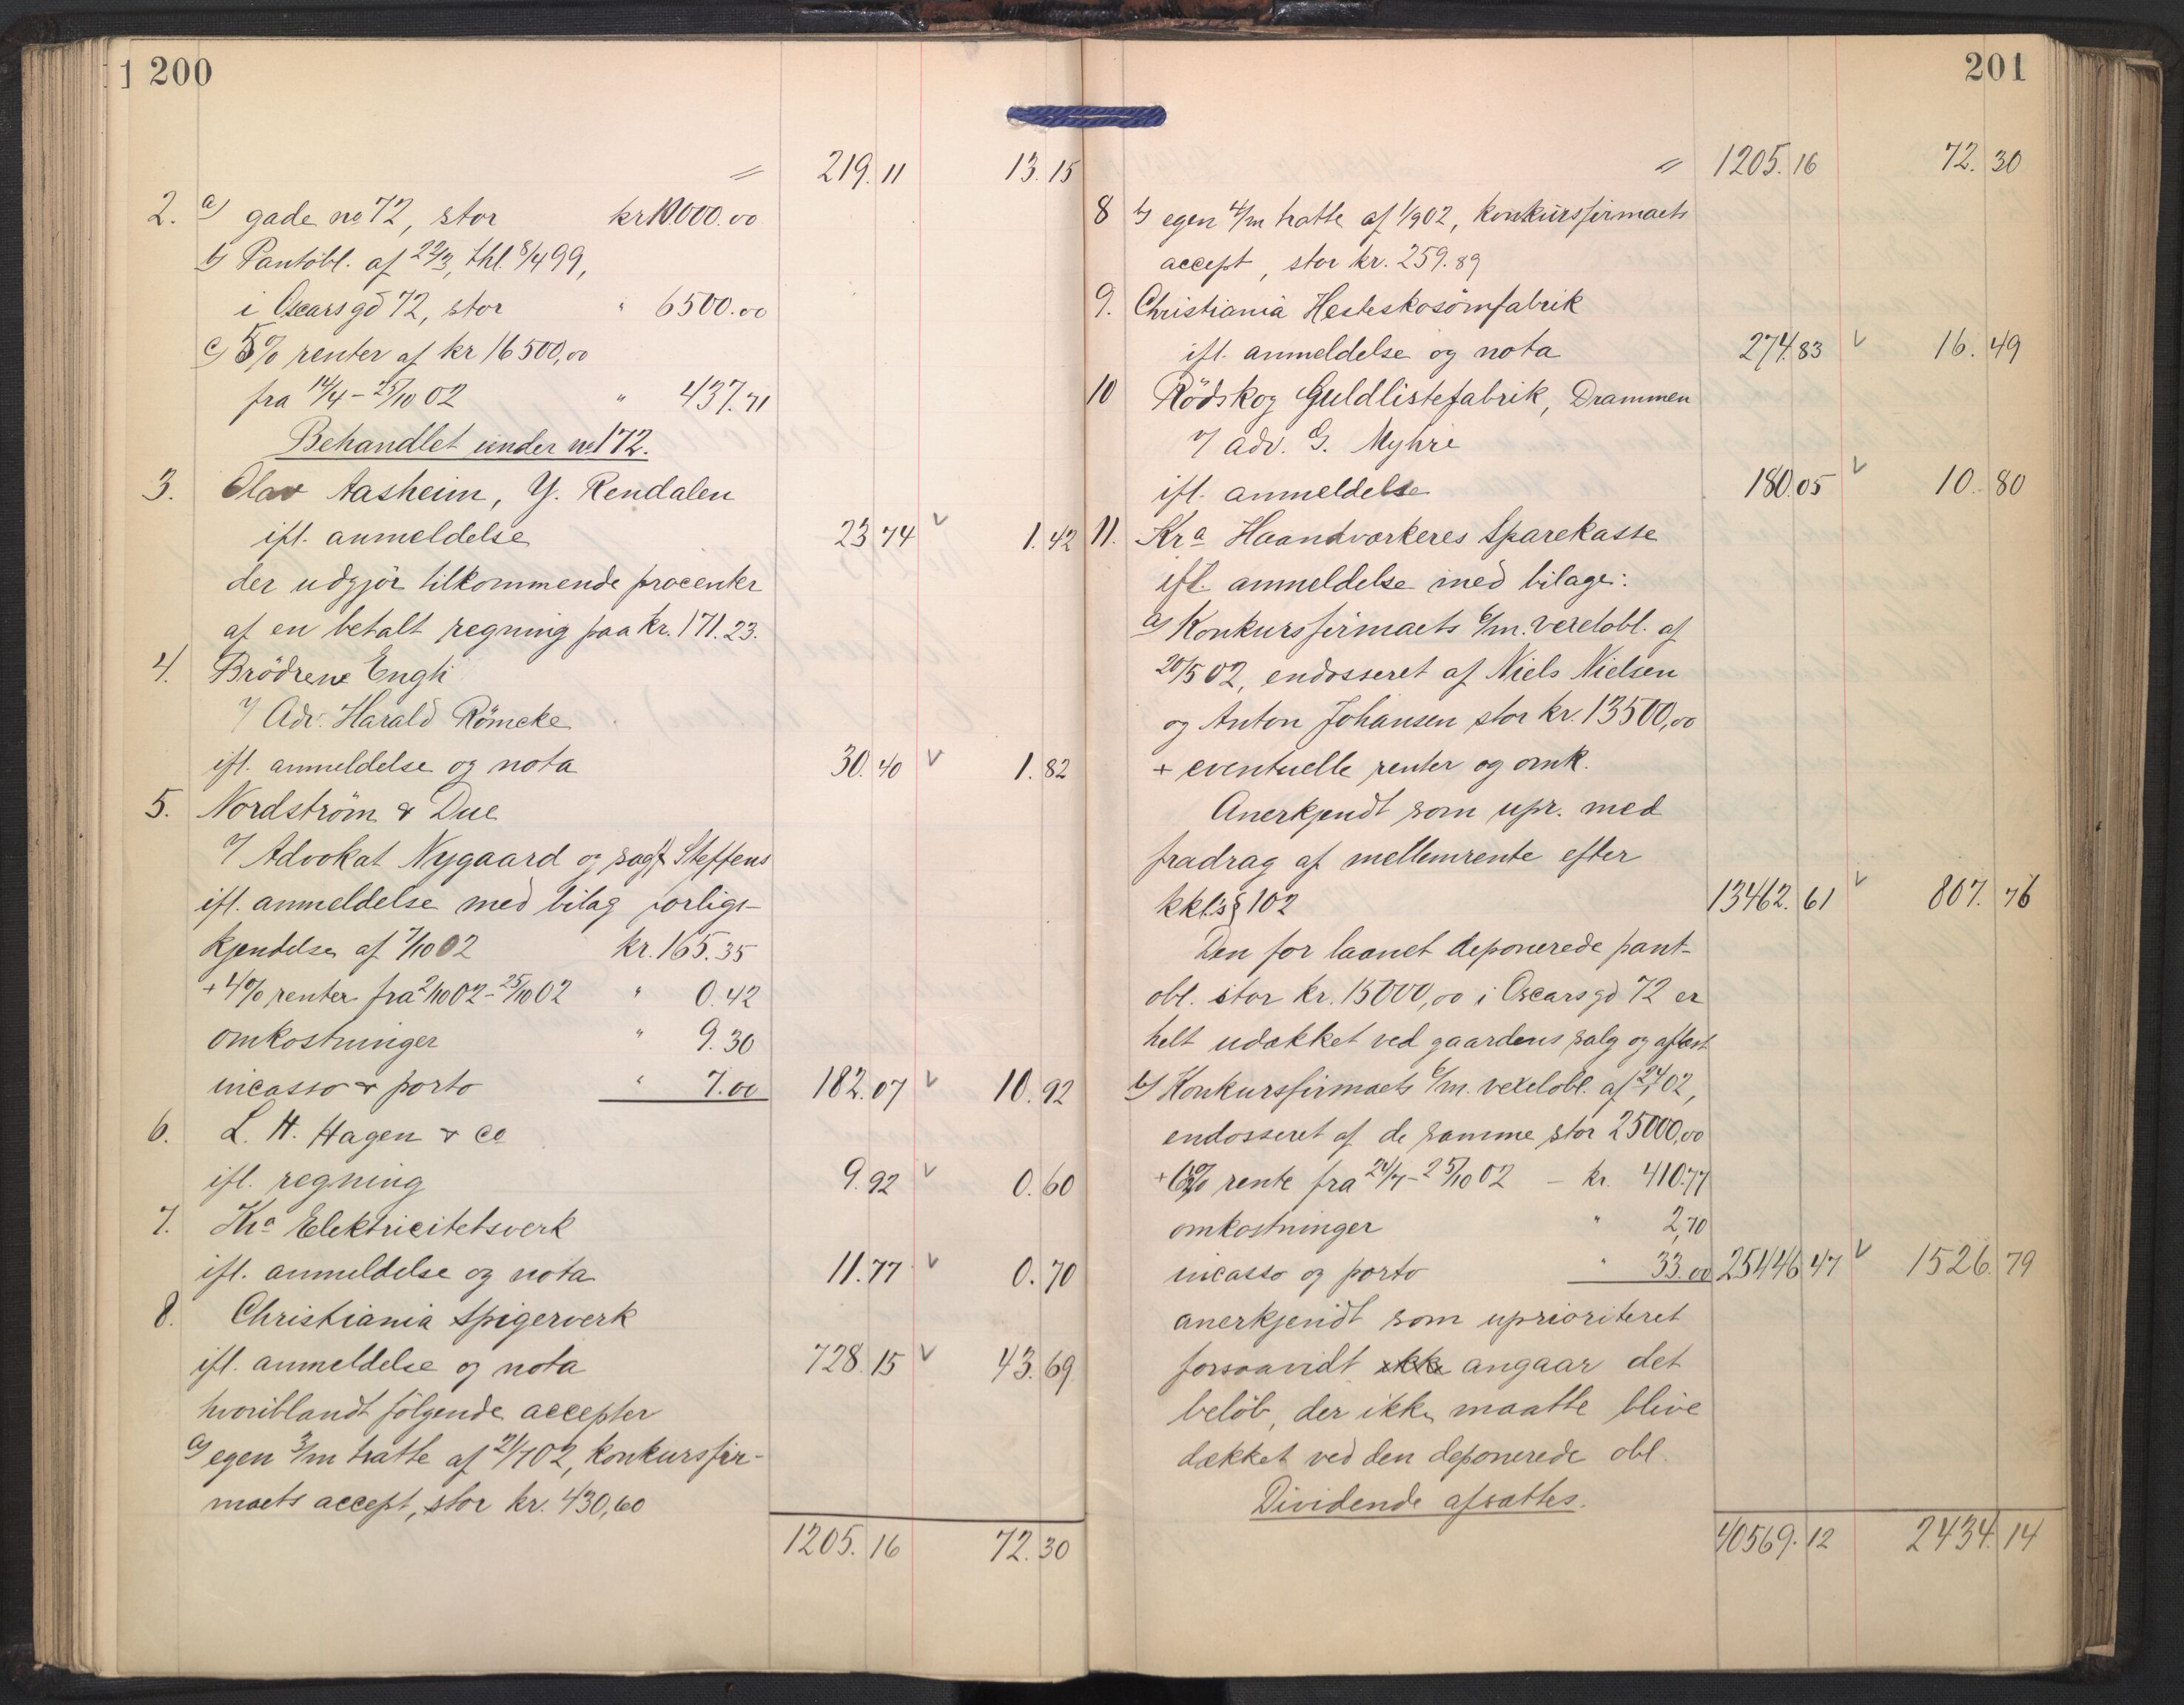 1 200
〃 219.11 13.15
2. a) gade no 72, stor kr 10000.00
b) Pantobl. af 22/3, thl. 8/4 99,
i Oscarsgd 72, stor " 6500.00
c) 5% renter af kr 16500,00
fra 14/4 - 25/10 02 " 437.71
Behandlet under no 172.
3. Olav Aasheim, Y. Rendalen
ifl. anmeldelse 23 74 v 1.42
der udgjör tilkommende procenter
af en betalt regning paa kr. 171.23.
4. Brödrene Engh
v/ Adv. Harald Römcke
ifl. anmeldelse og nota 30.40 v 1.82
5. Nordström & Due
v/ Advokat Nygaard og sagf. Steffens
ifl. anmeldelse med bilag forligs-
kjendelse af 7/10 02 kr. 165.35
+ 4% renter fra 2/10 02 - 25/10 02 " 0.42
omkostninger " 9.30
incasso & porto " 7.00 182.07 v 10.92
6. L. H. Hagen & Co
ifl. regning 9.92 v 0.60
7. Kra Elektricitetsverk
ifl. anmeldelse og nota 11.77 v 0.70
8. Christiania Spigerverk
ifl. anmeldelse og nota 728.15 v 43.69
hvoriblandt fölgende accepter
a) egen 3/m tratte af 21/7 02, konkursfir-
maets accept, stor kr. 430,60
1205.16 72.30
201
〃 1205.16 72.30
8 b) egen 4/m tratte af 1/9 02, konkursfirmaets
accept, stor kr. 259.89
9. Christiania Hesteskosömfabrik
ifl. anmeldelse og nota 274.83 v 16.49
10 Rödskog Guldlistefabrik, Drammen
v/ adv. G. Myhre
ifl. anmeldelse 180.05 v 10.80
11. Kra Haandværkeres Sparekasse
ifl. anmeldelse med bilage:
a) Konkursfirmaets 6/m. vexelobl. af
20/5 02, endosseret af Niels Nielsen
og Anton Johansen stor kr. 13500,00
+ eventuelle renter og omk.
Anerkjendt som upr. med
fradrag af mellemrente efter
kkl's § 102 13462.61 v 807.76
Den for laanet deponerede pant-
obl. stor kr. 15000,00 i Oscarsgd 72 er
helt udækket ved gaardens salg og aflæst
b) Konkursfirmaets 6/m. vexelobl. af 24/1 02,
endosseret af de samme stor 25000,00
+ rente fra 24/7 - 25/10 02 - kr. 410.77
omkostninger " 2,70
incasso og porto " 33.00 25446 47 v 1526.79
anerkjendt som uprioriteret
forsaavidt ikke angaar det
belöb, der ikke maatte blive
dækket ved den deponerede obl.
Dividende afsættes.
40569.12 2434.14